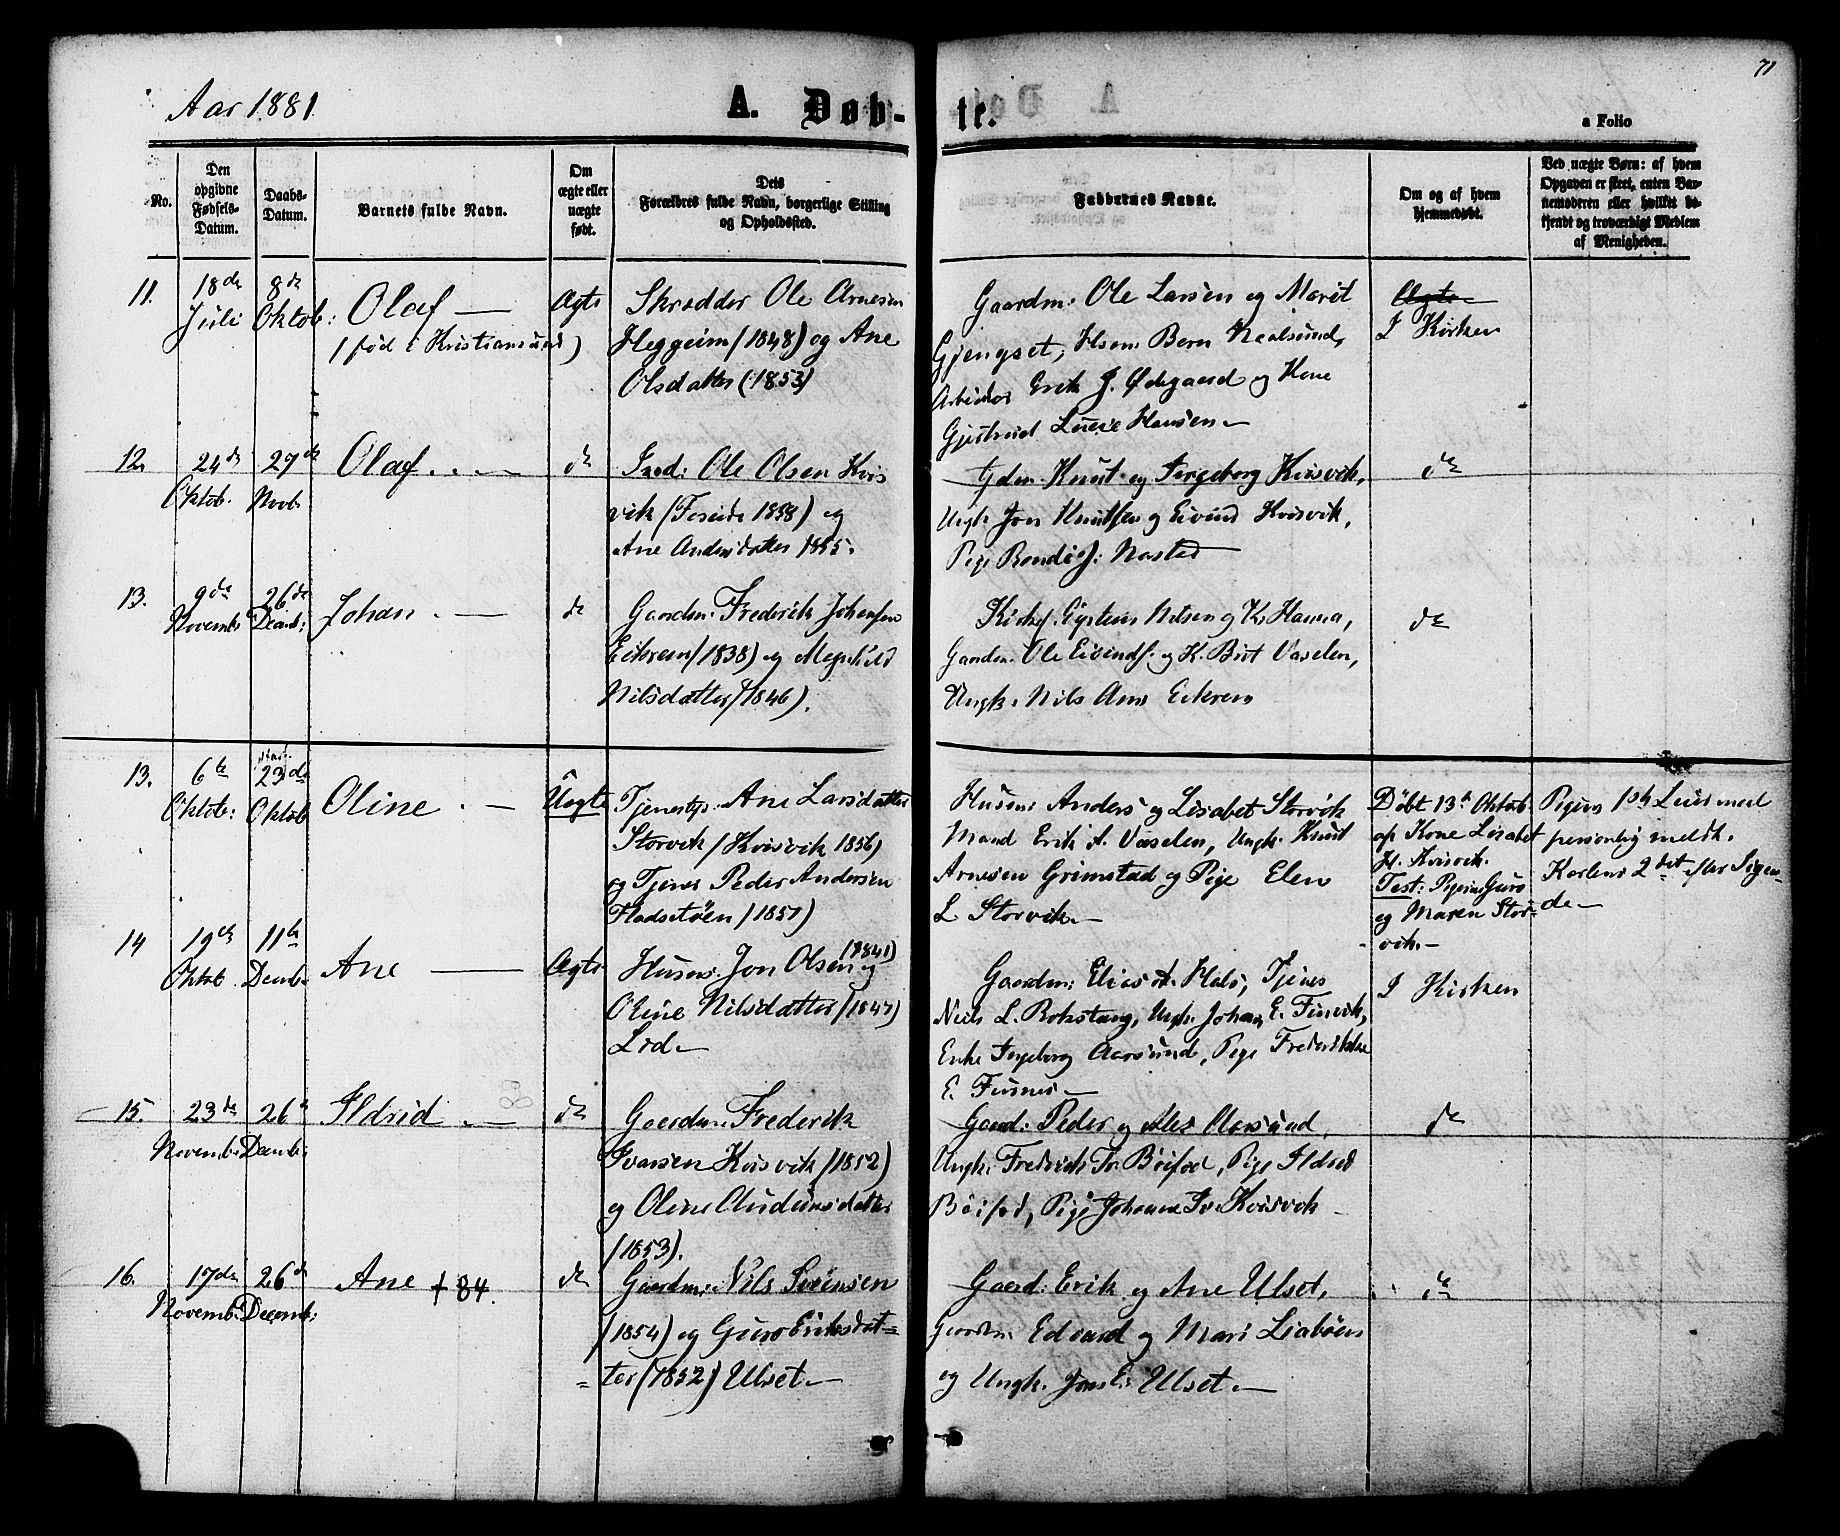 71
Aar 1881.
A. Døb-
te.
a Folio
No.
Den opgivne Fødsels-Datum.
Daabs-Datum.
Barnets fulde Navn.
Om ægte eller uægte født.
Dets Forældres fulde Navn, borgerlige Stilling og Opholdssted.
Faddernes Navne.
Om og af hvem hjemmedøbt.
Ved uægte Børn: af hvem Opgaven er skeet, enten Barnemoderen eller hvilket bekjendt og troværdigt Medlem af Menigheden.
11.
18de Juli
8de Oktob:
Olaf —
(fød i Kristiansund)
Ægte
Skrædder Ole Arnesen
Heggeim (1848) og Ane
Olsdatter (1853)
Gaardm: Ole Larsen og Marit
Gjengset, Husm: Bern
Arbeider Erik J. Ødegaard og Kone
Gjertrud Hansen.—
Ægte
I Kirken
12.
24de Oktob.
29de Novb.
Olaf. . . —
do
Ole Olsen Kvis
vik (Foreide 1858) og
Ane Andersdatter 1855.
Gdm. Knut og Ingeborg Kvisvik,
Ungk. Jon Knutsen og Eivind Kvisvik,
Pige J: Nastad
do
13.
9de Novemb:
26de Decemb:
Johan. —
do
Gaardm: Frederik Johansen
Eikrem (1838) og Magnhild
Nilsdatter (1846).
Kirkes: Eysten Nilsen og K. Hanna,
Gaardm. Ole Eivinds. og K. Brit Vaselen,
Ungk. Nils Eikrem
do
13.
6te Oktob:
23de Oktob
Oline . —
Uægte
Tjenestp. Ane Larsdatter
Storvik (Kvisvik 1856)
og Tjener Peder Andersen
Fladsetøen (1857)
Husm: Anders og Lisabet Storvik
Mand Erik A. Vaselen, Ungk. Knut
Arnesen Grimstad og Pige Elen
L. Storvik.—
Døbt 13de Oktob.
af Kone Lisabet
H. Kvisvik.
Test: Pigerne Guro
og Maren Stor-
vik.—
Pigens 1ste Leierm
personlig meldt.
Karlens 2det efter Sigen-
de.—
14
19de Oktob.
11te Decemb.
Ane —
Ægte
Husm. Jon Olsen (1841) og
Oline Nilsdatter (1847)
Lod.—
Gaardm: Elias A. Hals, Tjener
Niels L. Rokstang, Ungk. Johan E. Fisnes,
Enke Ingeborg Aarsund, Pige Frederikke
E. Fusnes—
I Kirken
15.
23de Novemb:
26de Decemb:
Ildrid . —
do
Gaardm: Frederik
Ivarsen Kvisvik (1852)
og Oline Audunsdatter
(1853).
Gaard: Peder og Ales Aarsund,
Ungk: Fredrik Iv. Bøifod, Pige Ildrid
Bøifod, Pige Johanna Iv. Kvisvik
do
16.
17de Novemb:
26de Decemb:
Ane + 84.
do
Gaardm: Nils Svensen
(1854) og Guro Eriksdat-
ter (1852) Ulset.—
Gaard: Erik og Ane Ulset,
Gaardm: Edvard og Mari Liabøen
og Ungk. Ulset.—
do